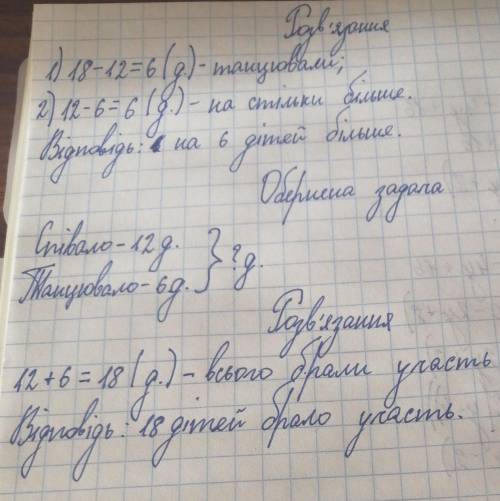 Розв'язання
1) 18-12=6 (д.)- танцювали;
2) 12-6=6 (д.) - на стільки більше.
Відповідь: на 6 дітей більше.
Обернена задача
Співало-12д.
Танцювало-6д. } ?д.
Розв'язання
12+6=18 (д.) - всього брали участь
Відповідь: 18 дітей брало участь.